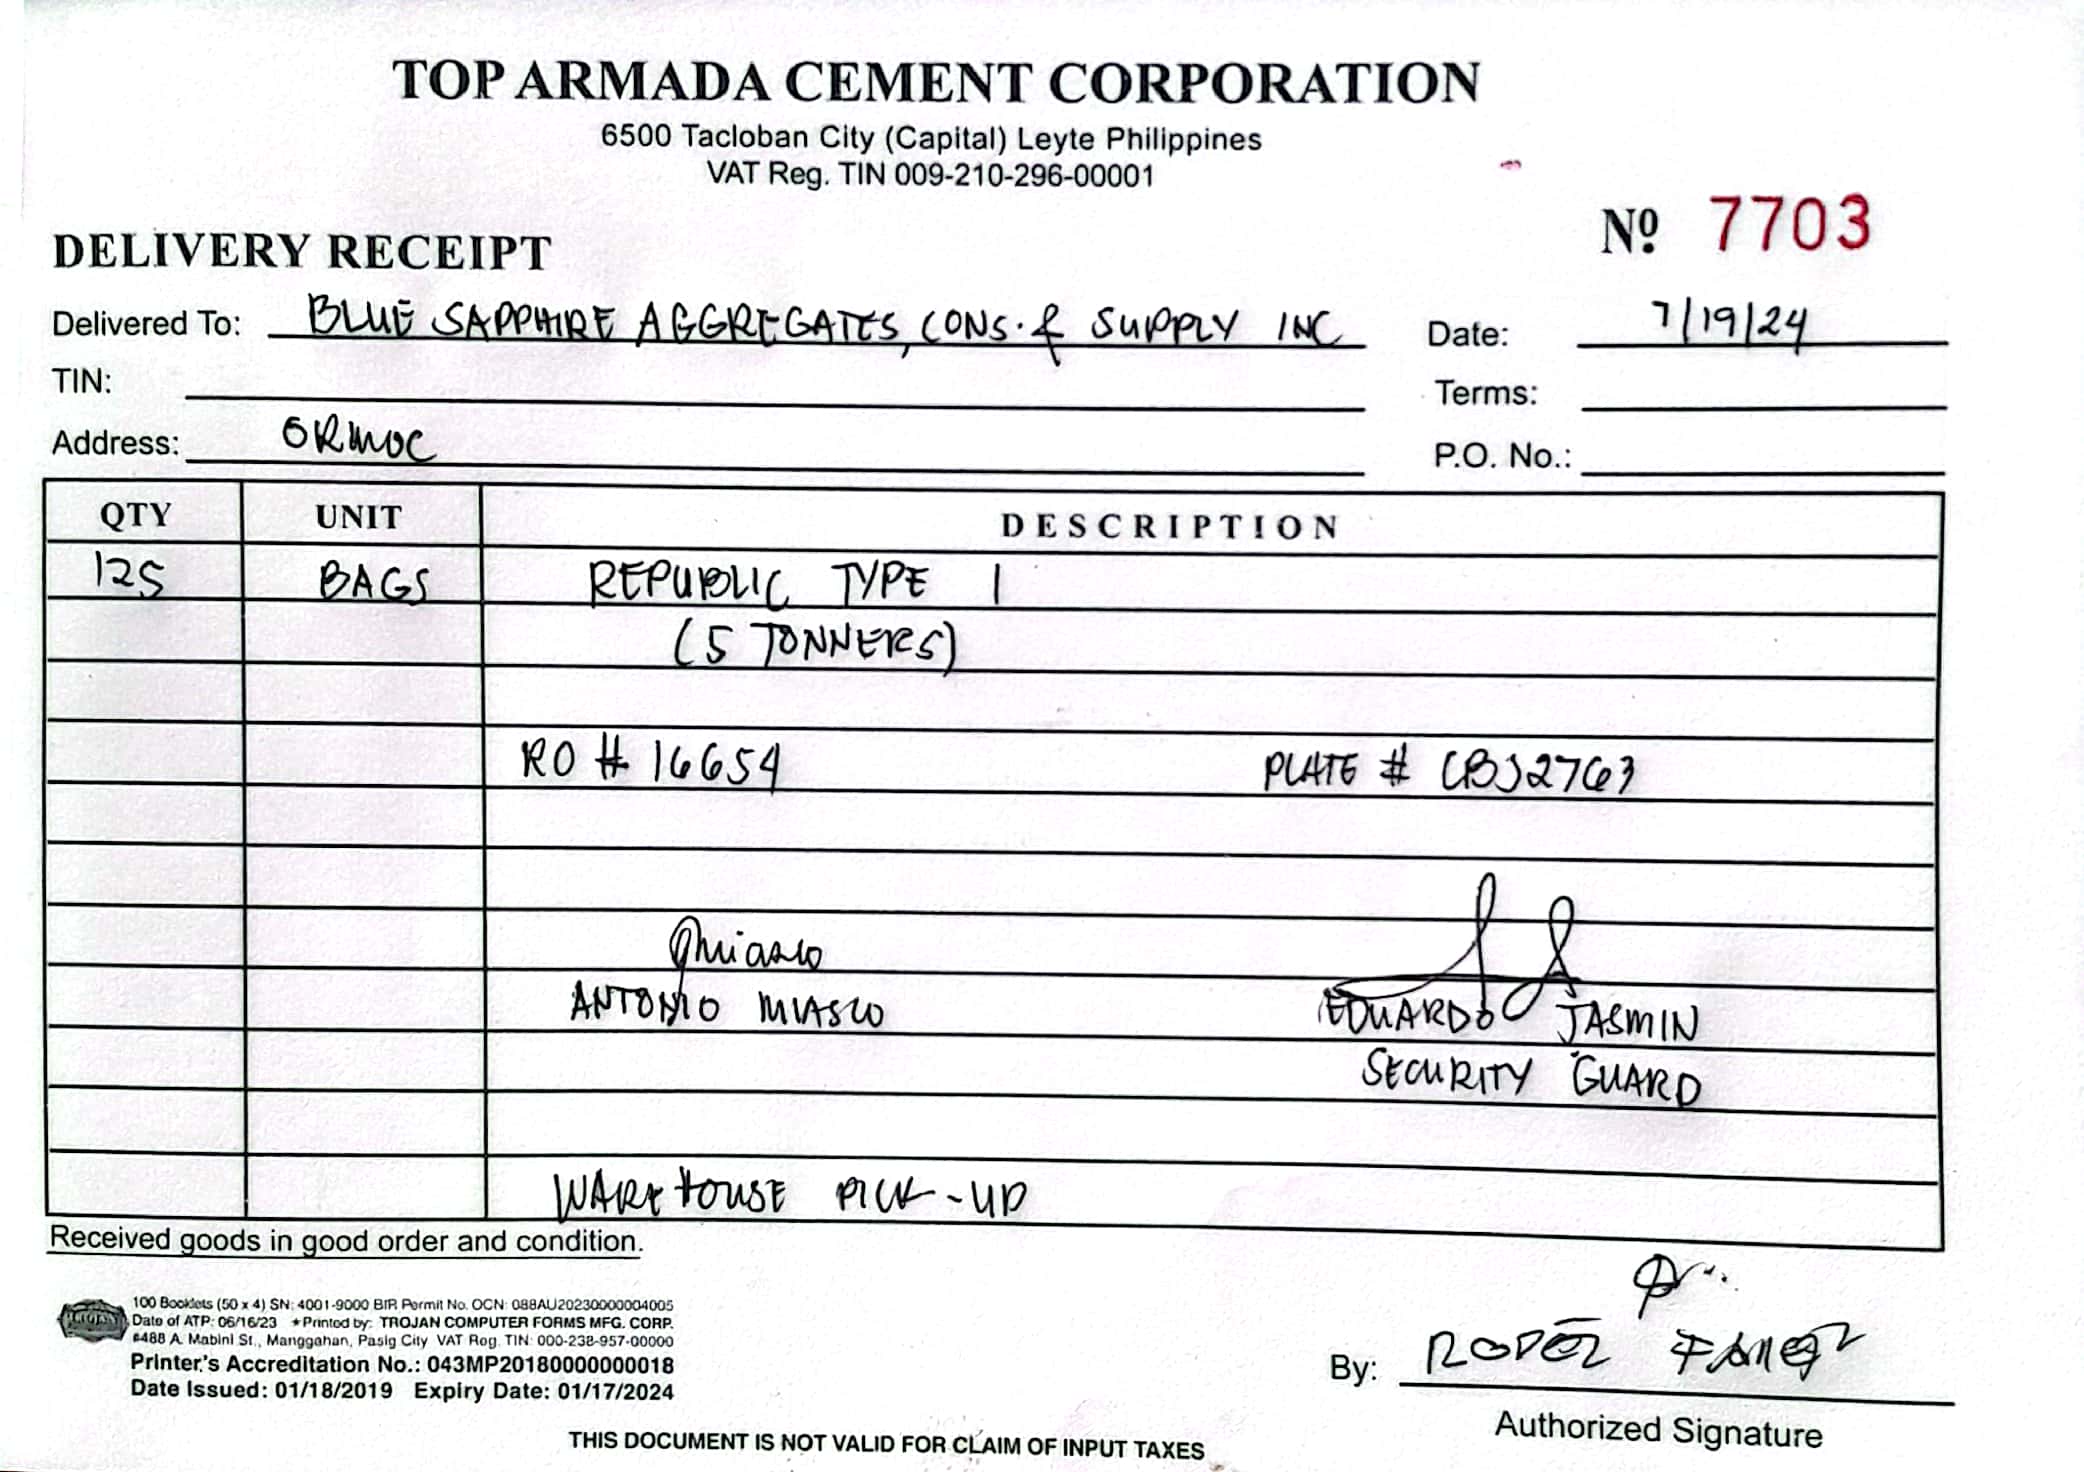 TOP ARMADA CEMENT CORPORATION
6500 Tacloban City (Capital) Leyte Philippines
VAT Reg. TIN 009-210-296-00001
Nº 7703
DELIVERY RECEIPT
Delivered To: BLUE SAPPHIRE AGGREGATES, CONS. & SUPPLY INC
Date: 7/19/24
TIN:
Terms:
Address: ORMOC
P.O. No.:
QTY UNIT DESCRIPTION
125 BAGS REPUBLIC TYPE 1
(5 TONNERS)
RO # 16654 PLATE # CBJ2763
Miasco
ANTONIO MIASCO EDUARDO JASMIN
SECURITY GUARD
WAREHOUSE PICK-UP
Received goods in good order and condition.
100 Booklets (50 x 4) SN: 4001-9000 BIR Permit No. OCN: 088AU20230000004005
Date of ATP: 06/16/23 *Printed by: TROJAN COMPUTER FORMS MFG. CORP.
#488 A. Mabini St., Manggahan, Pasig City VAT Reg. TIN: 000-238-957-00000
Printer's Accreditation No.: 043MP20180000000018
Date Issued: 01/18/2019 Expiry Date: 01/17/2024
By: RODEL
Authorized Signature
THIS DOCUMENT IS NOT VALID FOR CLAIM OF INPUT TAXES